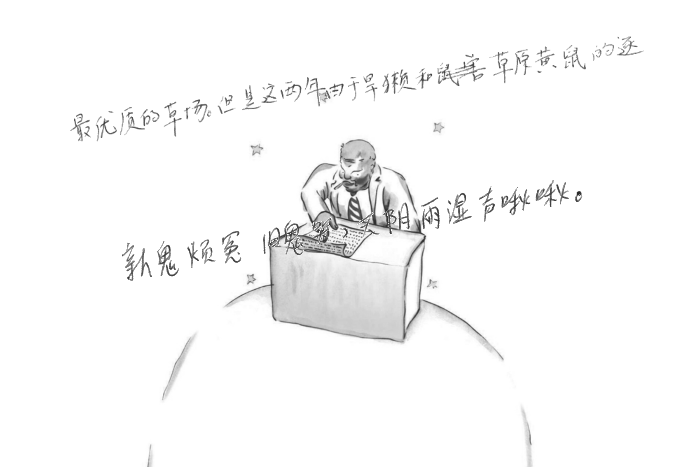 最优质的草场。但是这两年由于旱獭和鼠害草原黄鼠的逐
新鬼烦冤旧鬼哭，天阴雨湿声啾啾。